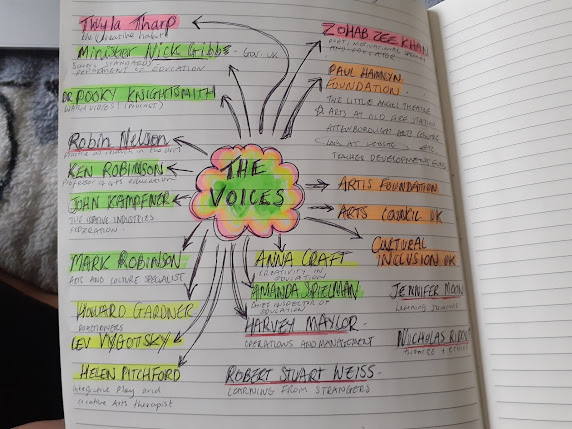 Twyla Tharp
the creative habit
Minister Nick Gibbs - Gov. UK
DEPARTMENT OF EDUCATION
DR POOKY KNIGHTSMITH
WATCH VIDEOS! (PODCAST)
Robin Nelson
Practice as research in the arts
KEN ROBINSON
Professor of arts education
JOHN KAMPFNER
INDUSTRIES
FEDERATION.
MARK ROBINSON
ARTS AND CULTURE SPECIALIST
HOWARD GARDNER
LEV VYGOTSKY
HELEN PITCHFORD
Integrative Play and
Creative Arts therapist
THE
VOICES
ZOHAB ZEE KHAN
POET, MOTIVATIONAL SPEAKER
AND EDUCATOR
PAUL HAMLYN
FOUNDATION.
THE LITTLE ANGEL THEATRE
ARTS AT OLD FIRE STATION
ATTENBOROUGH ARTS CENTRE
LOOK AT WEBSITE
TEACHER DEVELOPMENT FUND
ARTIS FOUNDATION
ARTS COUNCIL UK
CULTURAL
INCLUSION UK
ANNA CRAFT
CREATIVITY IN
EDUCATION
AMANDA SPIELMAN
CHIEF INSPECTOR OF
EDUCATION
HARVEY MAYLOR -
OPERATIONS AND MANAGEMENT
ROBERT STUART WEISS -
LEARNING FROM STRANGERS
JENNIFER MOON
Learning Journals
NICHOLAS